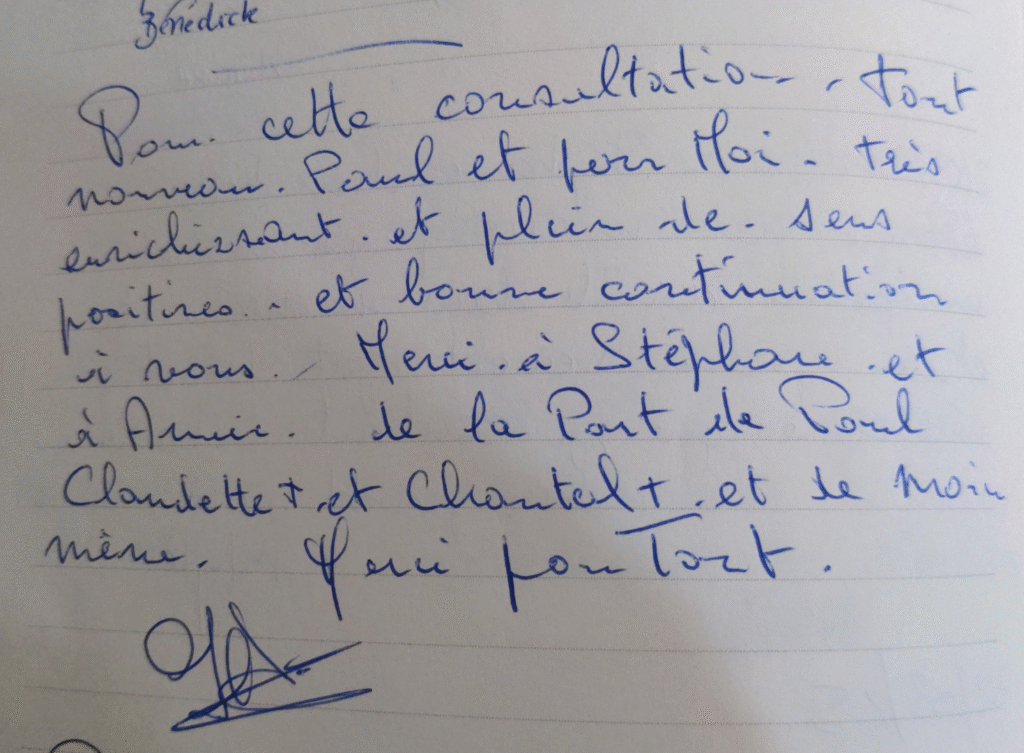 Bénédicte
Pour cette consultation. Tout
nouveau. Paul et pour Moi. très
enrichissant. et plein de. sens
positives. et bonne continuation
à vous. Merci. à Stéphane. et
à Annie. de la Part de Paul
Claudette +. et Chantal +. et de Moi
même. Merci pour Tout.